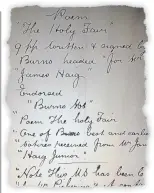 Poem
"The Holy Fair"
9 pp written & signed by
Burns headed "for Mr
"James Haig"
Endorsed
"Burns
"Poem The holy Fair
"One of Burns best and earlie
"Satires received from Mr Jam
"Haig Junior"
Note This MS has been